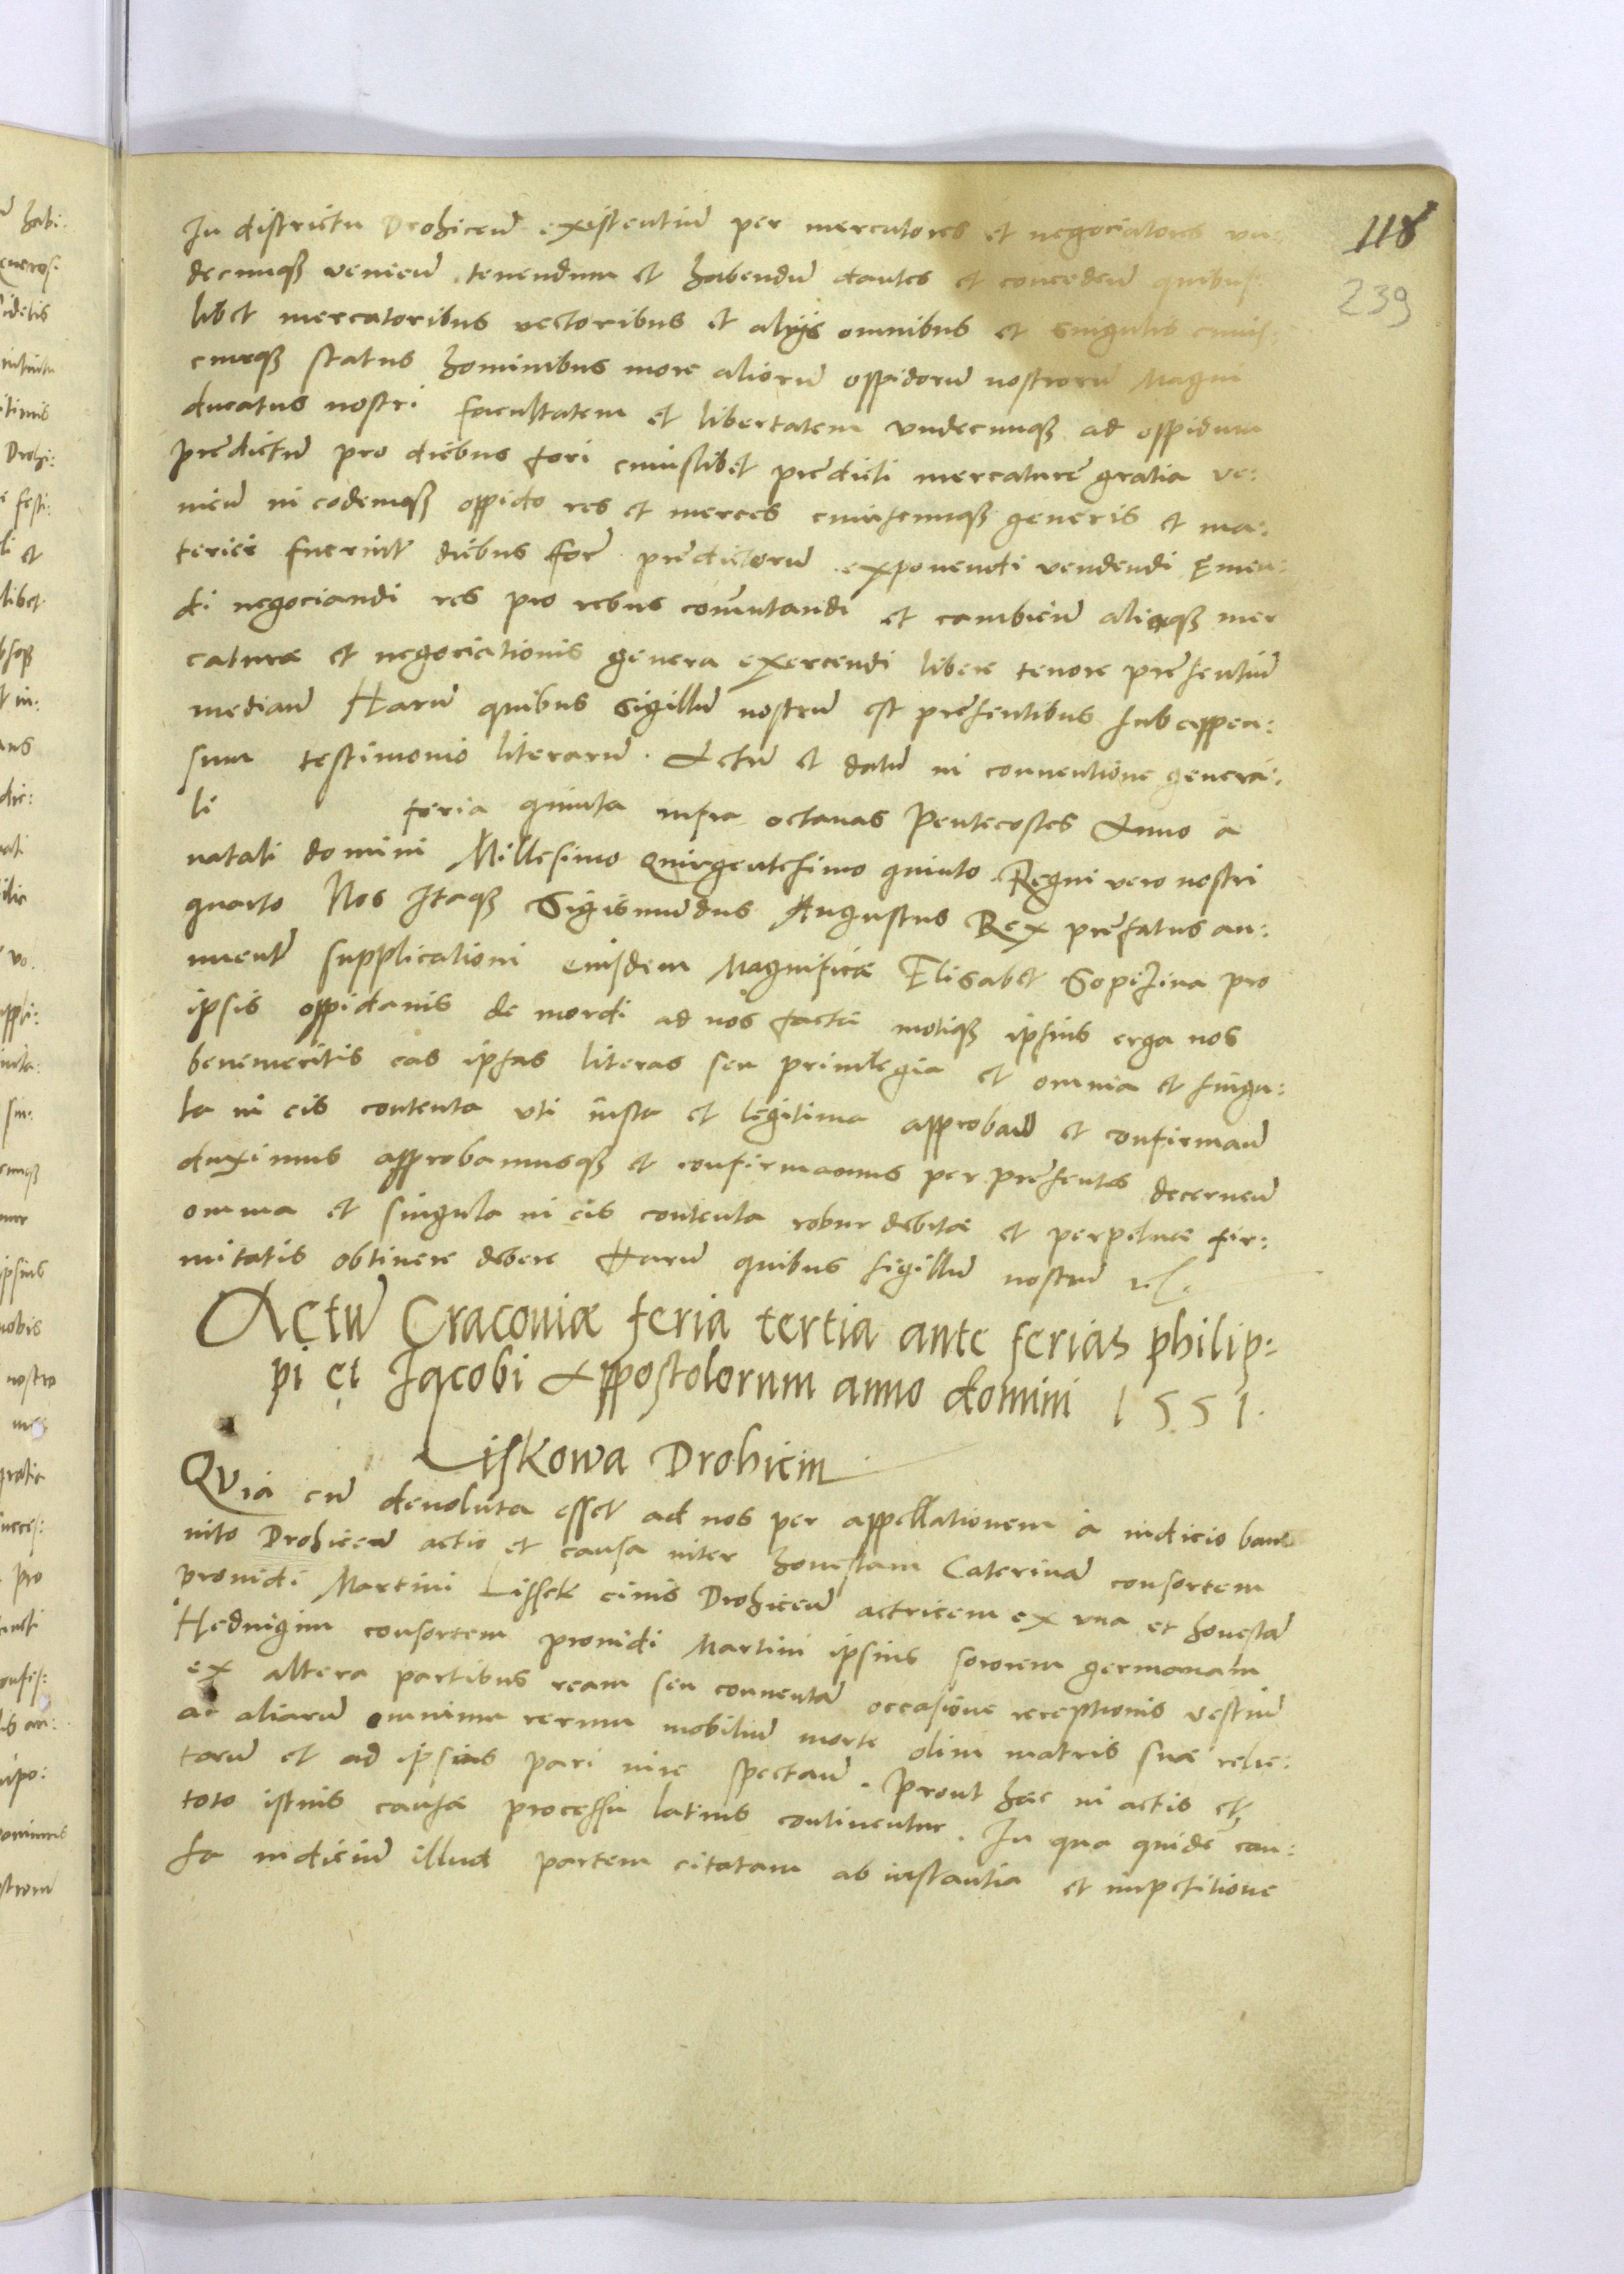 118
239
In districtu Drohiceñ existentiũ per mercatores et negociatores vn:
decunq₃ venieñ tenendum et habendũ dantes et concedeñ quibus:
libet mercatoribus vectoribus et alijs omnibus et singulis cuius:
cunq₃ status hominibus more aliorũ oppidorũ nostrorũ Magni
ducatus nostri facultatem et libertatem vndecunq₃ ad oppidum
predictũ pro diebus fori cuiuslibet predicti mercature gratia ve:
nieñ in eodemq₃ oppido res et merces cuiuscunq₃ generis et ma:
teriei fuerint diebus for̃ predictorũ exponendi vendendi emen:
di negociandi res pro rebus com̃utandi et cambieñ aliaq₃ mer
caturæ et negociationis genera exercendi libere tenore presentiũ
medianñ Harũ quibus sigillũ nostrum est presentibus subappen:
sum testimonio literarũ. Actũ et datũ in conuentione genera:
li feria quinta infra octauas Pentecostes Anno a
natali domini Millesimo quingentesimo quinto. Regni vero nostri
quarto Nos Itaq₃ Sigismundus Augustus Rex prefatus an:
nuent̃ supplicationi eiusdem Magnificæ Elisabet Sopizina pro
ipsis oppidanis de mordi ad nos factæ motiq₃ ipsius erga nos
benemeritis eas ipsas literas seu priuilegia et omnia et singu:
la in eis contenta vti iusta et legitima approbañd et confirmañ
duximus approbamusq₃ et confirmamus per presentes decerneñ
omnia et singula in eis contenta robur debitæ et perpetuæ fir:
mitatis obtinere debere Harũ quibus sigillũ nostrũ
Actũ Cracouiæ feria tertia ante ferias philip:
pi et Jacobi Appostolorum anno domini 1551.
Liskowa Drohicin
Quia cũ deuoluta esset ad nos per appellationem a iudicio ban
nito Drohiceñ actio et causa inter honestam Caterinã consortem
prouidi Martini Lissek ciuis Drohiceñ actricem ex vna et honestã
Hedwigim consortem prouidi Martini ipsius sororem germanam
ex altera partibus ream seu conuentã occasione receptionis vestiũ
ac aliarũ omnium rerum mobiliũ morte olim matris suæ relic:
tarũ et ad ipsius pari iure spectañ. Prout hæc in actis et
toto istius causæ processu latius continentur. In qua quidẽ cau:
sa iudiciũ illud partem citatam ab instantia et impetitione